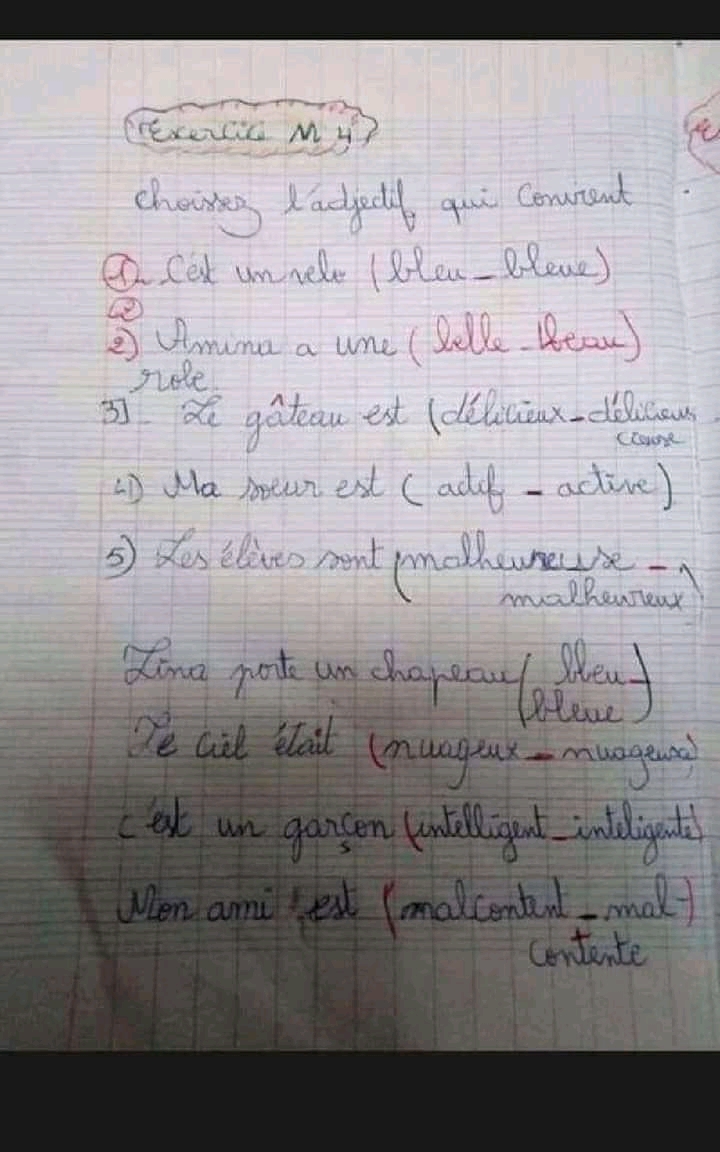 Exercice N 4
choissez l'adjectif qui convient
1. C'est un velo (bleu - bleue)
2
2) Amina a une (belle - beau)
robe.
3] Le gâteau est (délicieux - délicieus
cieuse
4) Ma soeur est (actif - active)
5) Les élèves sont (malheureuse -
malheureux)
Lina porte un chapeau (bleu -
bleue)
Le ciel était (nuageux - nuageuse)
c'est un garçon (intelligent - inteligente)
Mon ami est (malcontent - mal-)
contente